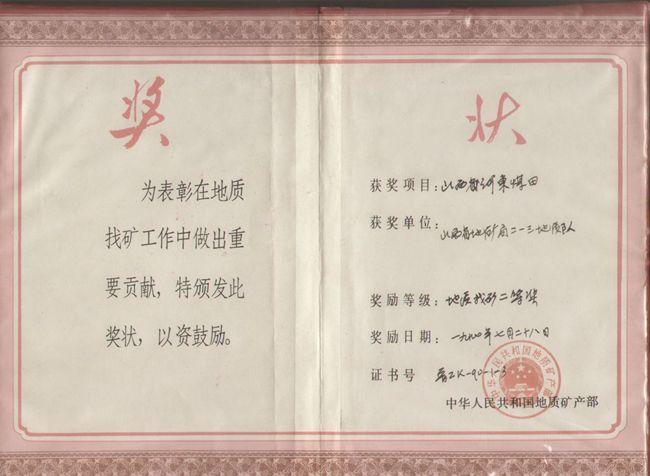 奖状
为表彰在地质
找矿工作中做出重
要贡献，特颁发此
奖状，以资鼓励。
获奖项目：山西省河东煤田
获奖单位：山西省地矿局二一三地质队
奖励等级：地质找矿二等奖
奖励日期：一九九〇年七月二十八日
证书号 晋ZK-90-1-3
中华人民共和国地质矿产部
中华人民共和国地质矿产部